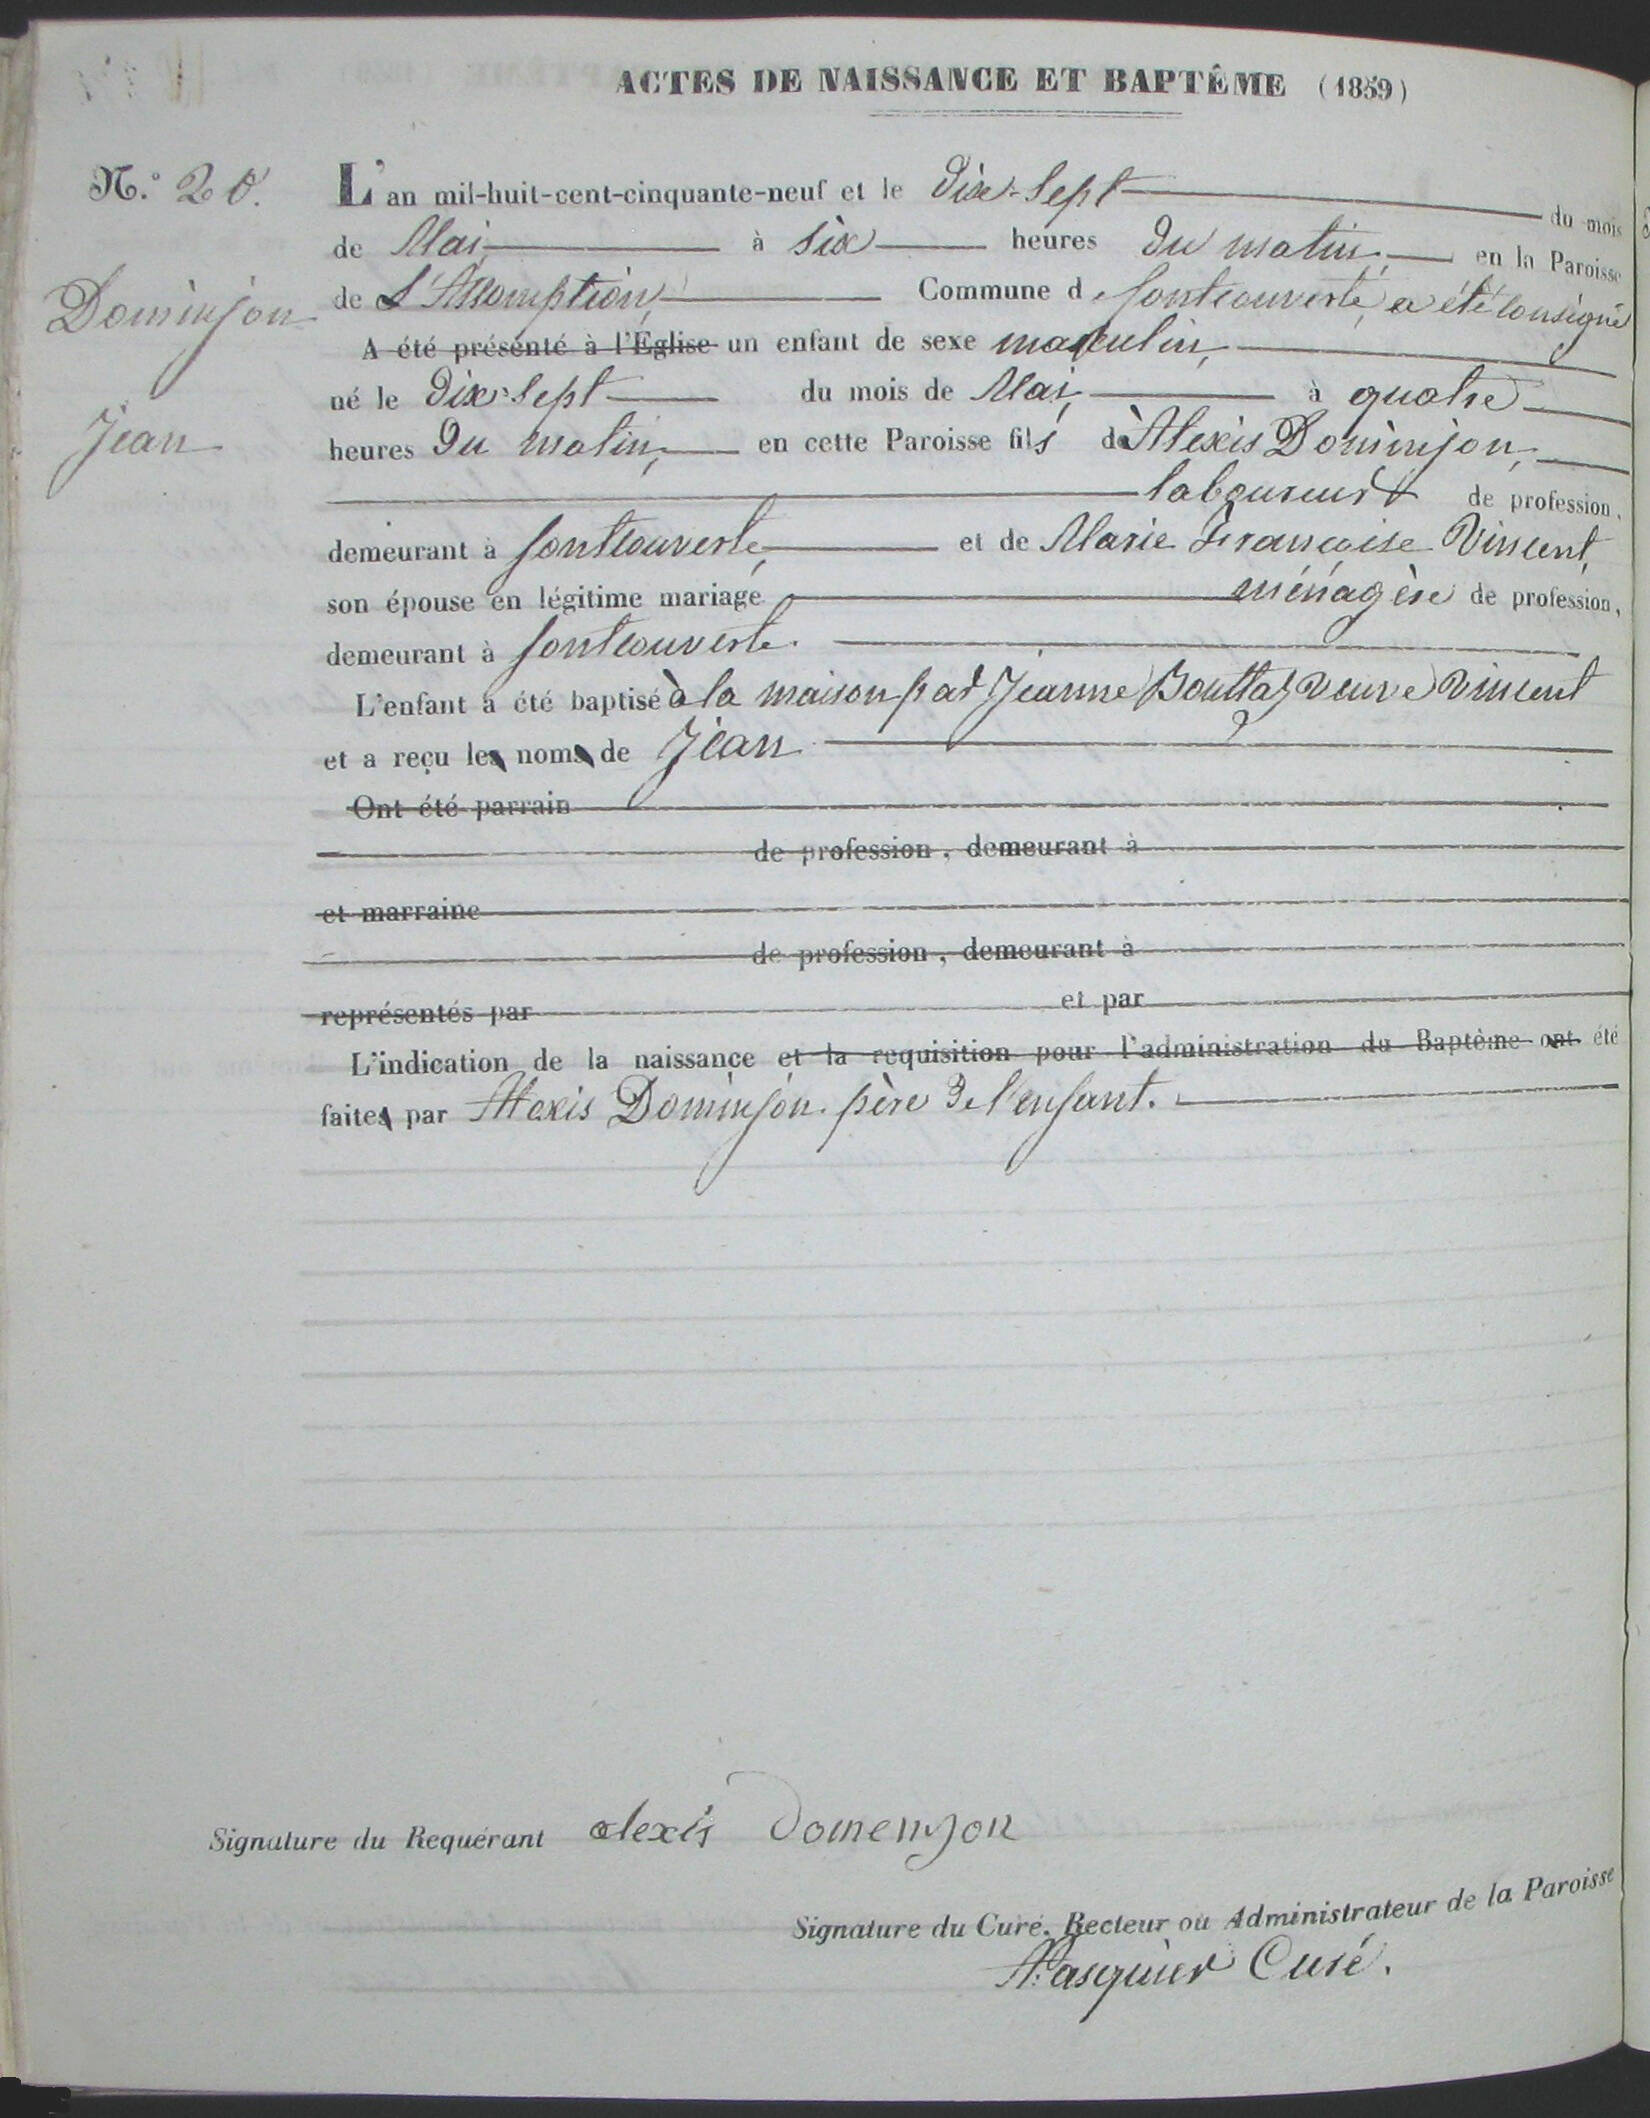 ACTES DE NAISSANCE ET BAPTÊME (1859)
N.° 20.
L'an mil-huit-cent-cinquante-neuf et le Dix-Sept du mois
de Mai, à Six heures Du matin, en la Paroisse
de L'Assomption, Commune d Fontcouverte, a été consigné
Dominjon
A été présenté à l'Église un enfant de sexe masculin,
né le Dix-Sept du mois de Mai, à quatre
Jean
heures Du matin, en cette Paroisse fils d'Alexis Dominjon,
laboureur de profession,
demeurant à Fontcouverte, et de Marie Françoise Vincent,
son épouse en légitime mariage ménagère de profession,
demeurant à Fontcouverte.
L'enfant a été baptisé à la maison par Jeanne Bouttaz veuve Vincent
et a reçu les noms de Jean
Ont été parrain
de profession, demeurant à
et marraine
de profession, demeurant à
représentés par et par
L'indication de la naissance et la requisition pour l'administration du Baptème ont été
faites par Alexis Dominjon père de l'enfant.
Signature du Requérant alexis Domenjon
Signature du Curé, Recteur ou Administrateur de la Paroisse
Pasquier Curé.